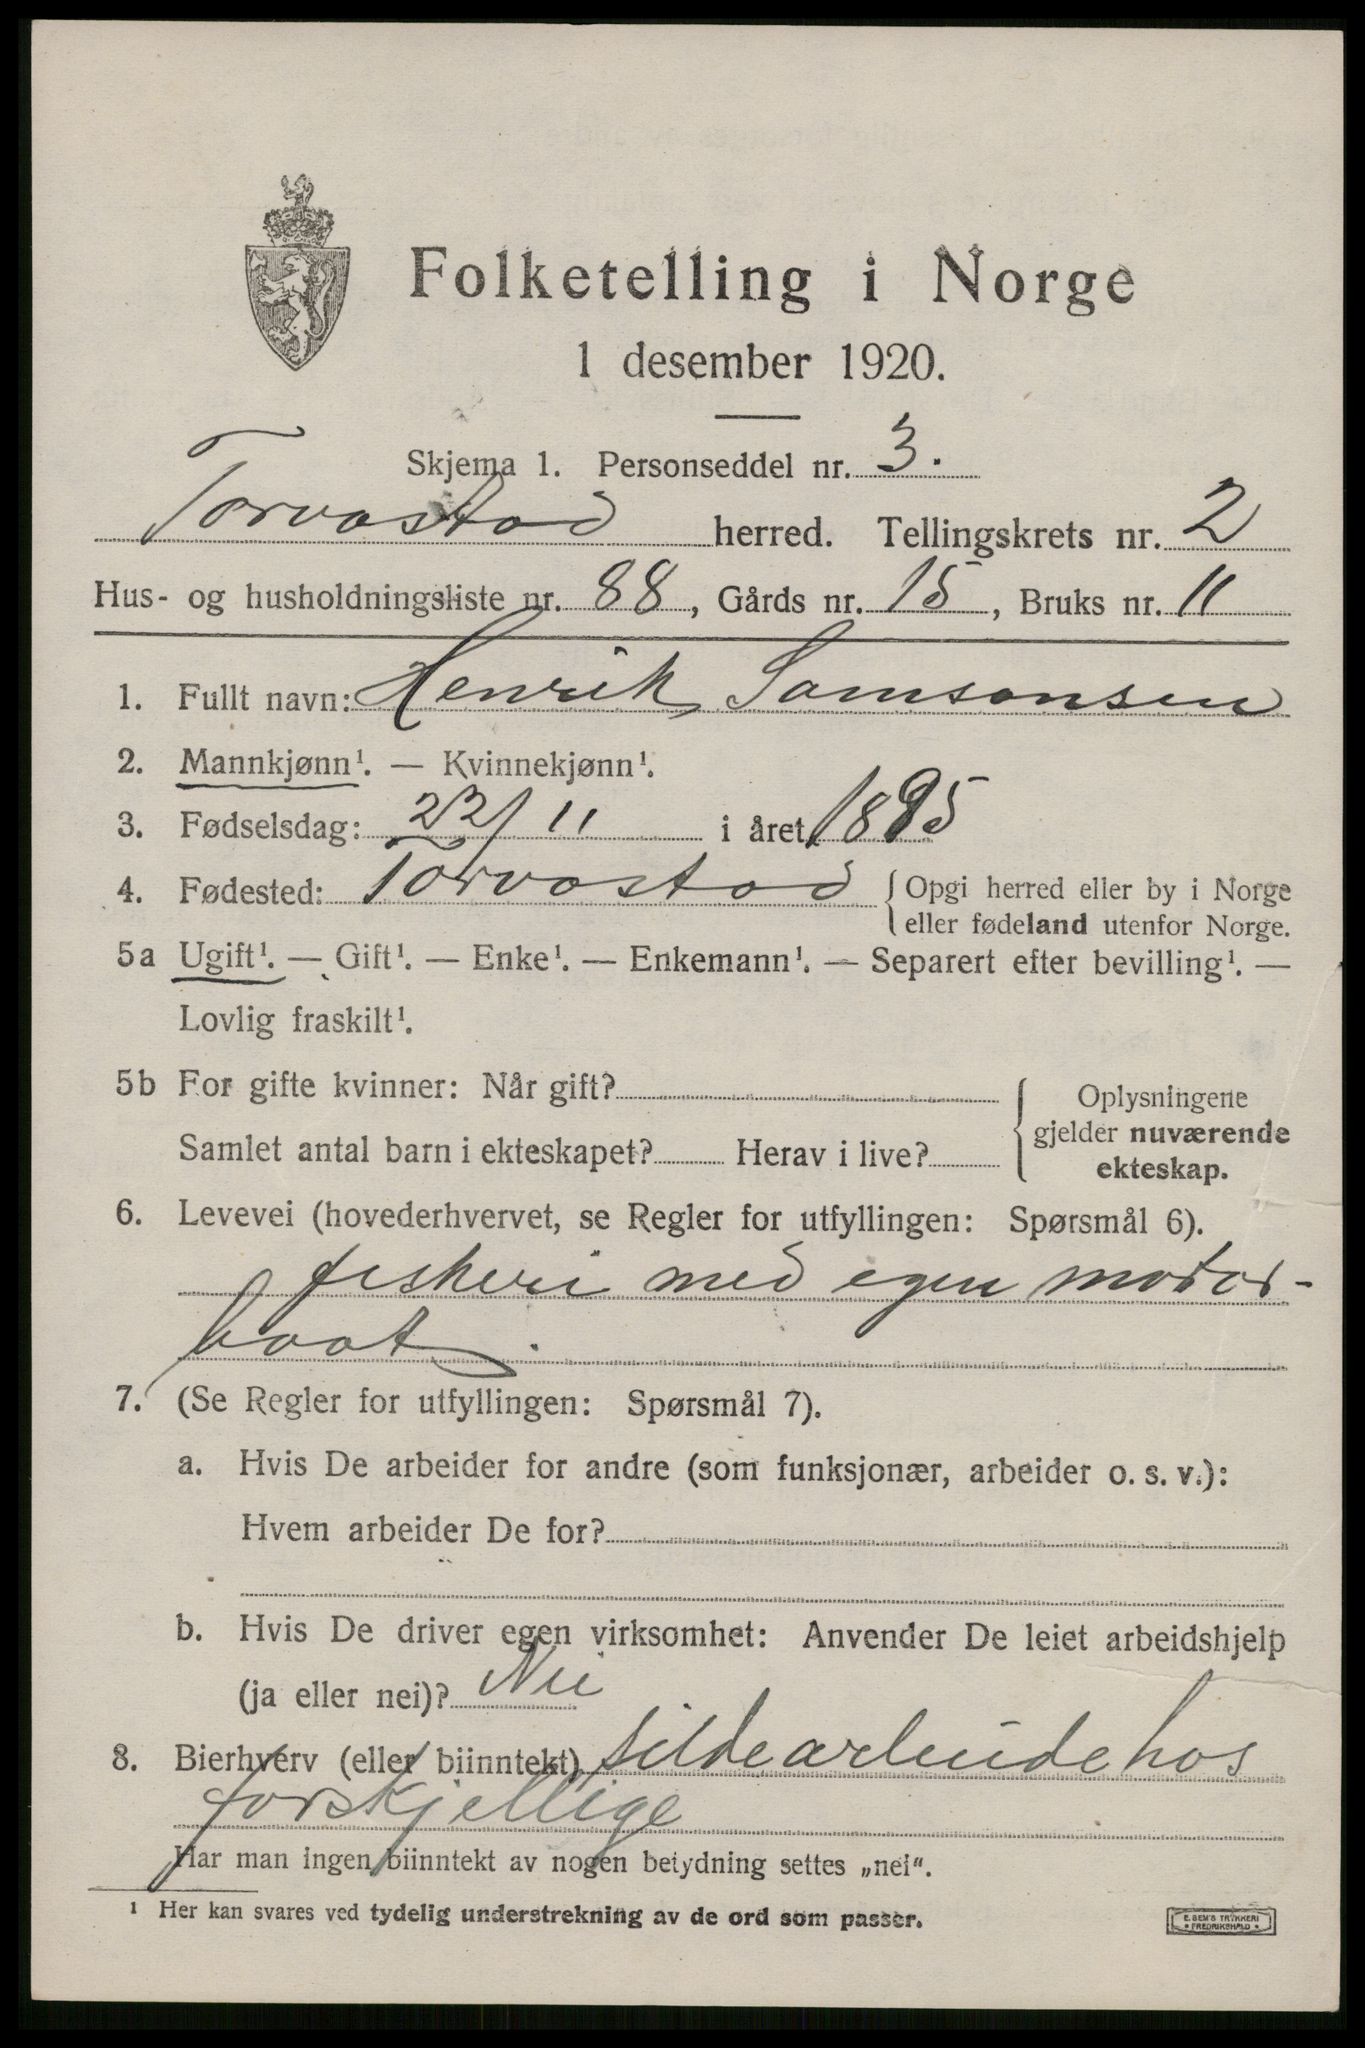 Folketelling i Norge
1 desember 1920.
Skjema 1. Personseddel nr. 3.
Torvastad herred. Tellingskrets nr. 2
Hus- og husholdningsliste nr. 88, Gårds nr. 15, Bruks nr. 11
1. Fullt navn: Henrik Samsonsen
2. Mannkjønn¹. — Kvinnekjønn¹.
3. Fødselsdag: 22/11 i året 1895
4. Fødested: Torvastad { Opgi herred eller by i Norge
eller fødeland utenfor Norge.
5a Ugift¹. — Gift¹. — Enke¹. — Enkemann¹. — Separert efter bevilling¹. —
Lovlig fraskilt¹.
5b For gifte kvinner: Når gift?
Samlet antal barn i ekteskapet? Herav i live?
{ Oplysningene
gjelder nuværende
ekteskap.
6. Levevei (hovederhvervet, se Regler for utfyllingen: Spørsmål 6).
fiskeri med egen motor-
baat.
7. (Se Regler for utfyllingen: Spørsmål 7).
a. Hvis De arbeider for andre (som funksjonær, arbeider o. s. v.):
Hvem arbeider De for?
b. Hvis De driver egen virksomhet: Anvender De leiet arbeidshjelp
(ja eller nei)? Nei
8. Bierhverv (eller biinntekt) sildearbeide hos
forskjellige
Har man ingen biinntekt av nogen betydning settes „nei“.
¹ Her kan svares ved tydelig understrekning av de ord som passer.
E. SEM'S TRYKKERI
FREDRIKSHALD